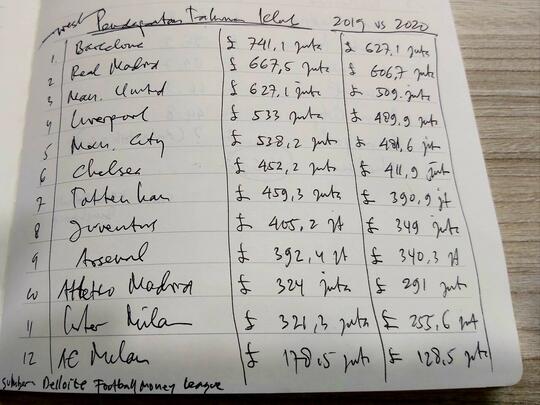 West Pendapatan Tahunan Klub 2019 vs 2020
1 Barcelona £ 741,1 juta £ 627,1 juta
2 Real Madrid £ 667,5 juta £ 606,7 juta
3 Man. United £ 627,1 juta £ 509. juta
4 Liverpool £ 533 juta £ 489.9 juta
5 Man. City £ 538,2 juta £ 481,6 jt
6 Chelsea £ 452,2 juta £ 411,9 juta
7 Tottenham £ 459,3 juta £ 390,9 jt
8 Juventus £ 405,2 jt £ 349 juta
9 Arsenal £ 392,4 jt £ 340,3 jt
10 Atletico Madrid £ 324 juta £ 291 juta
11 Inter Milan £ 321,3 juta £ 255,6 jut
12 AC Milan £ 178,5 juta £ 128,5 juta
sumber: Delloite Football Money League